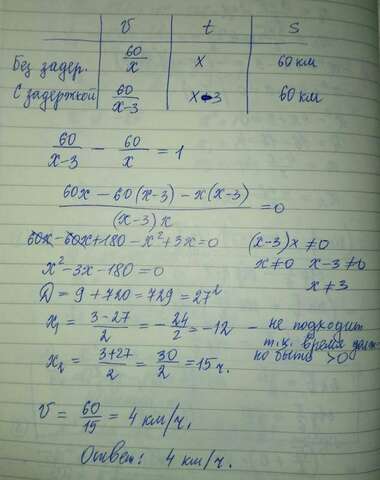 v t s
Без задер. 60/x x 60 км
С задержкой 60/x-3 x-3 60 км
60/x-3 - 60/x = 1
60x - 60(x-3) - x(x-3)/(x-3)x = 0
60x - 60x + 180 - x² + 3x = 0 (x-3)x ≠ 0
x² - 3x - 180 = 0 x ≠ 0 x - 3 ≠ 0
D = 9 + 720 = 729 = 27² x ≠ 3
x₁ = 3-27/2 = -24/2 = -12 - не подходит
т.к. время долж
x₂ = 3+27/2 = 30/2 = 15 ч. но быть > 0
v = 60/15 = 4 км/ч.
Ответ: 4 км/ч.